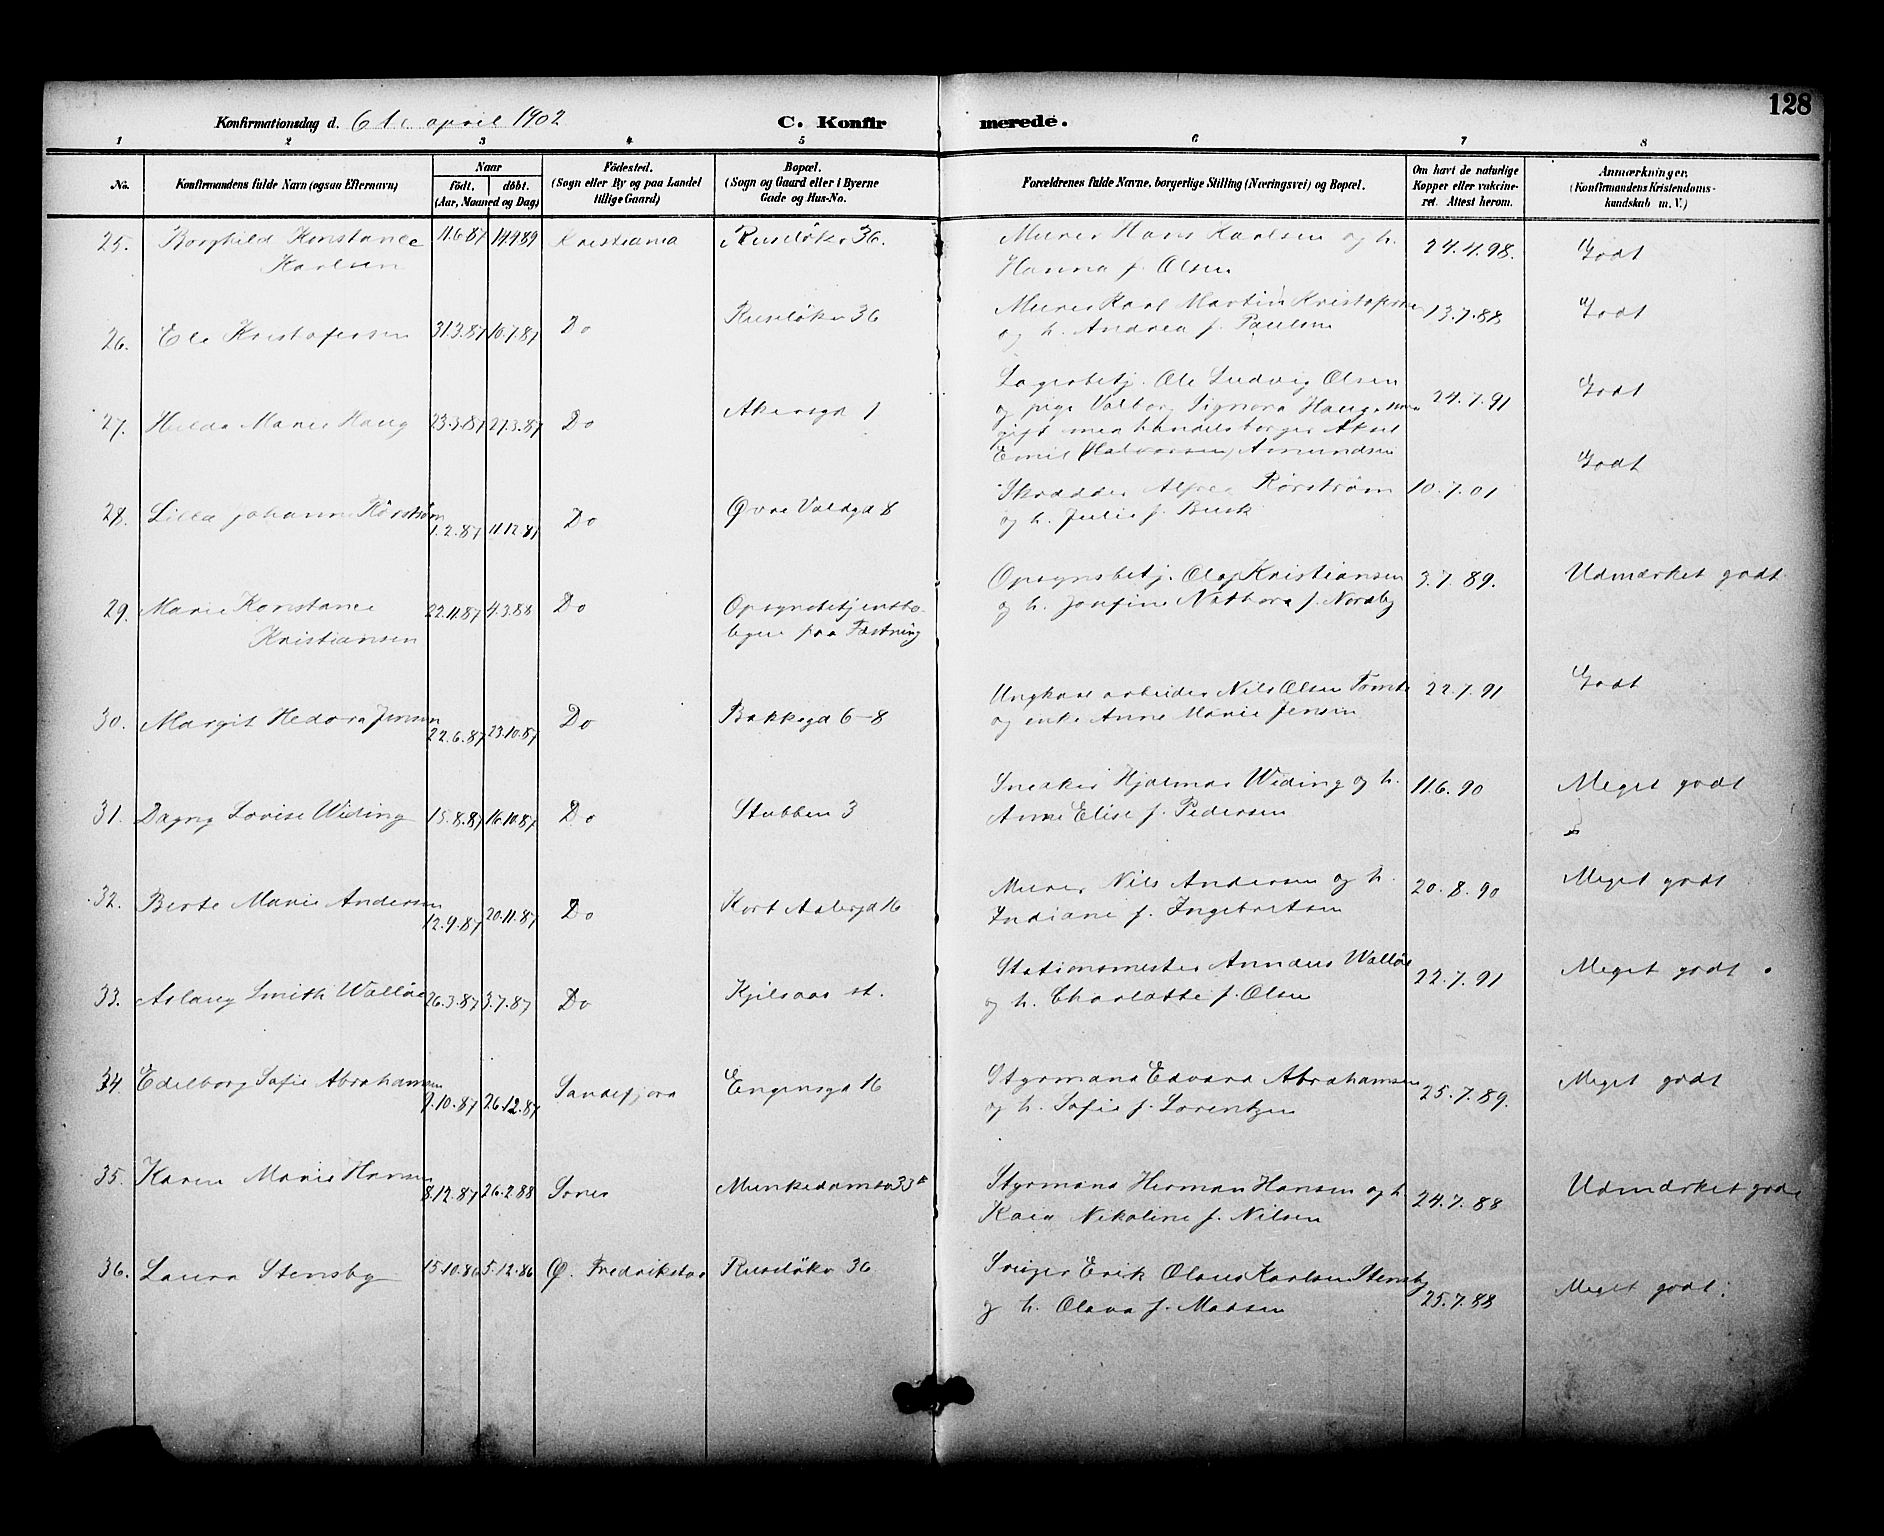 128
Konfirmationsdag d. 6te april 1902
C. Konfirmerede.
1 2 3 4 5 6 7 8
No.
Konfirmandens fulde Navn (ogsaa Efternavn)
Naar
født. døbt.
(Aar, Maaned og Dag)
Födested.
(Sogn eller By og paa Landet
tillige Gaard)
Bopæl.
(Sogn og Gaard eller i Byerne
Gade og Hus-No.
Forældrenes fulde Navne, borgerlige Stilling (Næringsvei) og Bopæl.
Om havt de naturlige
Kopper eller vakcine-
ret. Attest herom.
Anmærkninger.
(Konfirmandens Kristendoms-
kundskab m. V.)
25. Borghild Konstance 11.6.87 14.9.89 Kristiania Ruseløkv 36. Murer Hans Karlsen og h. 24.4.98. Godt
Karlsen Hanna f. Olsen
26. Ole Kristofersen 31.3.87 10.7.87 Do Ruseløkv 36 Murer Karl Martin Kristofersen 13.7.88 Godt
og h. Andrea f. Paulsen
27. Hulda Marie Haug 23.3.87 27.3.87 Do Akersgd 1 Lagerbetj. Ole Ludvig Olsen 24.7.91 Godt
og pige Valborg Signora Haug, nu
gift med handelsborger Aksel
Emil (Halvorsen) Amundsen
28. Lilla Johanne Rørstrøm 1.2.87 11.12.87 Do Øvre Voldgd 8 Skrædder Alfred Rørstrøm 10.7.01 Godt
og h. Julie f. Busk
29. Marie Konstance 22.11.87 4.3.88 Do Opsynsbetjentbo- Opsynsbetj. Olaf Kristiansen 3.7.89. Udmærket godt
Kristiansen ligen paa Fæstning og h. Josefine Nathora f. Nordby
30. Margit Hedora Jensen 22.6.87 23.10.87 Do Bakkegd 6-8 Ungkarl arbeider Nils Olsen Tomte 22.7.91 Godt
og enke Anne Marie Jensen
31. Dagny Lovise Widing 15.8.87 16.10.87 Do Stubben 3 Snedker Hjalmar Widing og h. 11.6.90 Meget godt
Anne Elise f. Pedersen
32. Berte Marie Andersen 12.9.87 20.11.87 Do Kort Adlergd 16 Murer Nils Andersen og h. 20.8.90 Meget godt
Indiane f. Ingebretsen
33. Aslaug Smith Walløe 26.3.87 3.7.87 Do Kjelsaas st. Stationsmester Annæus Walløe 22.7.91 Meget godt
og h. Charlotte f. Olsen
34. Edelborg Sofie Abrahamsen 9.10.87 26.12.87 Sandefjord Engensgd 16 Styrmand Edvard Abrahamsen 25.7.89. Meget godt
og h. Sofie f. Lorentzen
35. Karen Marie Hansen 8.12.87 26.2.88 Munkedamsv 33 Styrmand Herman Hansen og h. 24.7.88 Udmærket godt
Nikoline f. Nilsen
36. Laura Stensby 15.10.86 5.12.86 Ø. Fredrikstad Ruseløkv 36 Erik Olaus Karlsen Stensby 25.7.88 Meget godt
og h. Olava f. Madsen